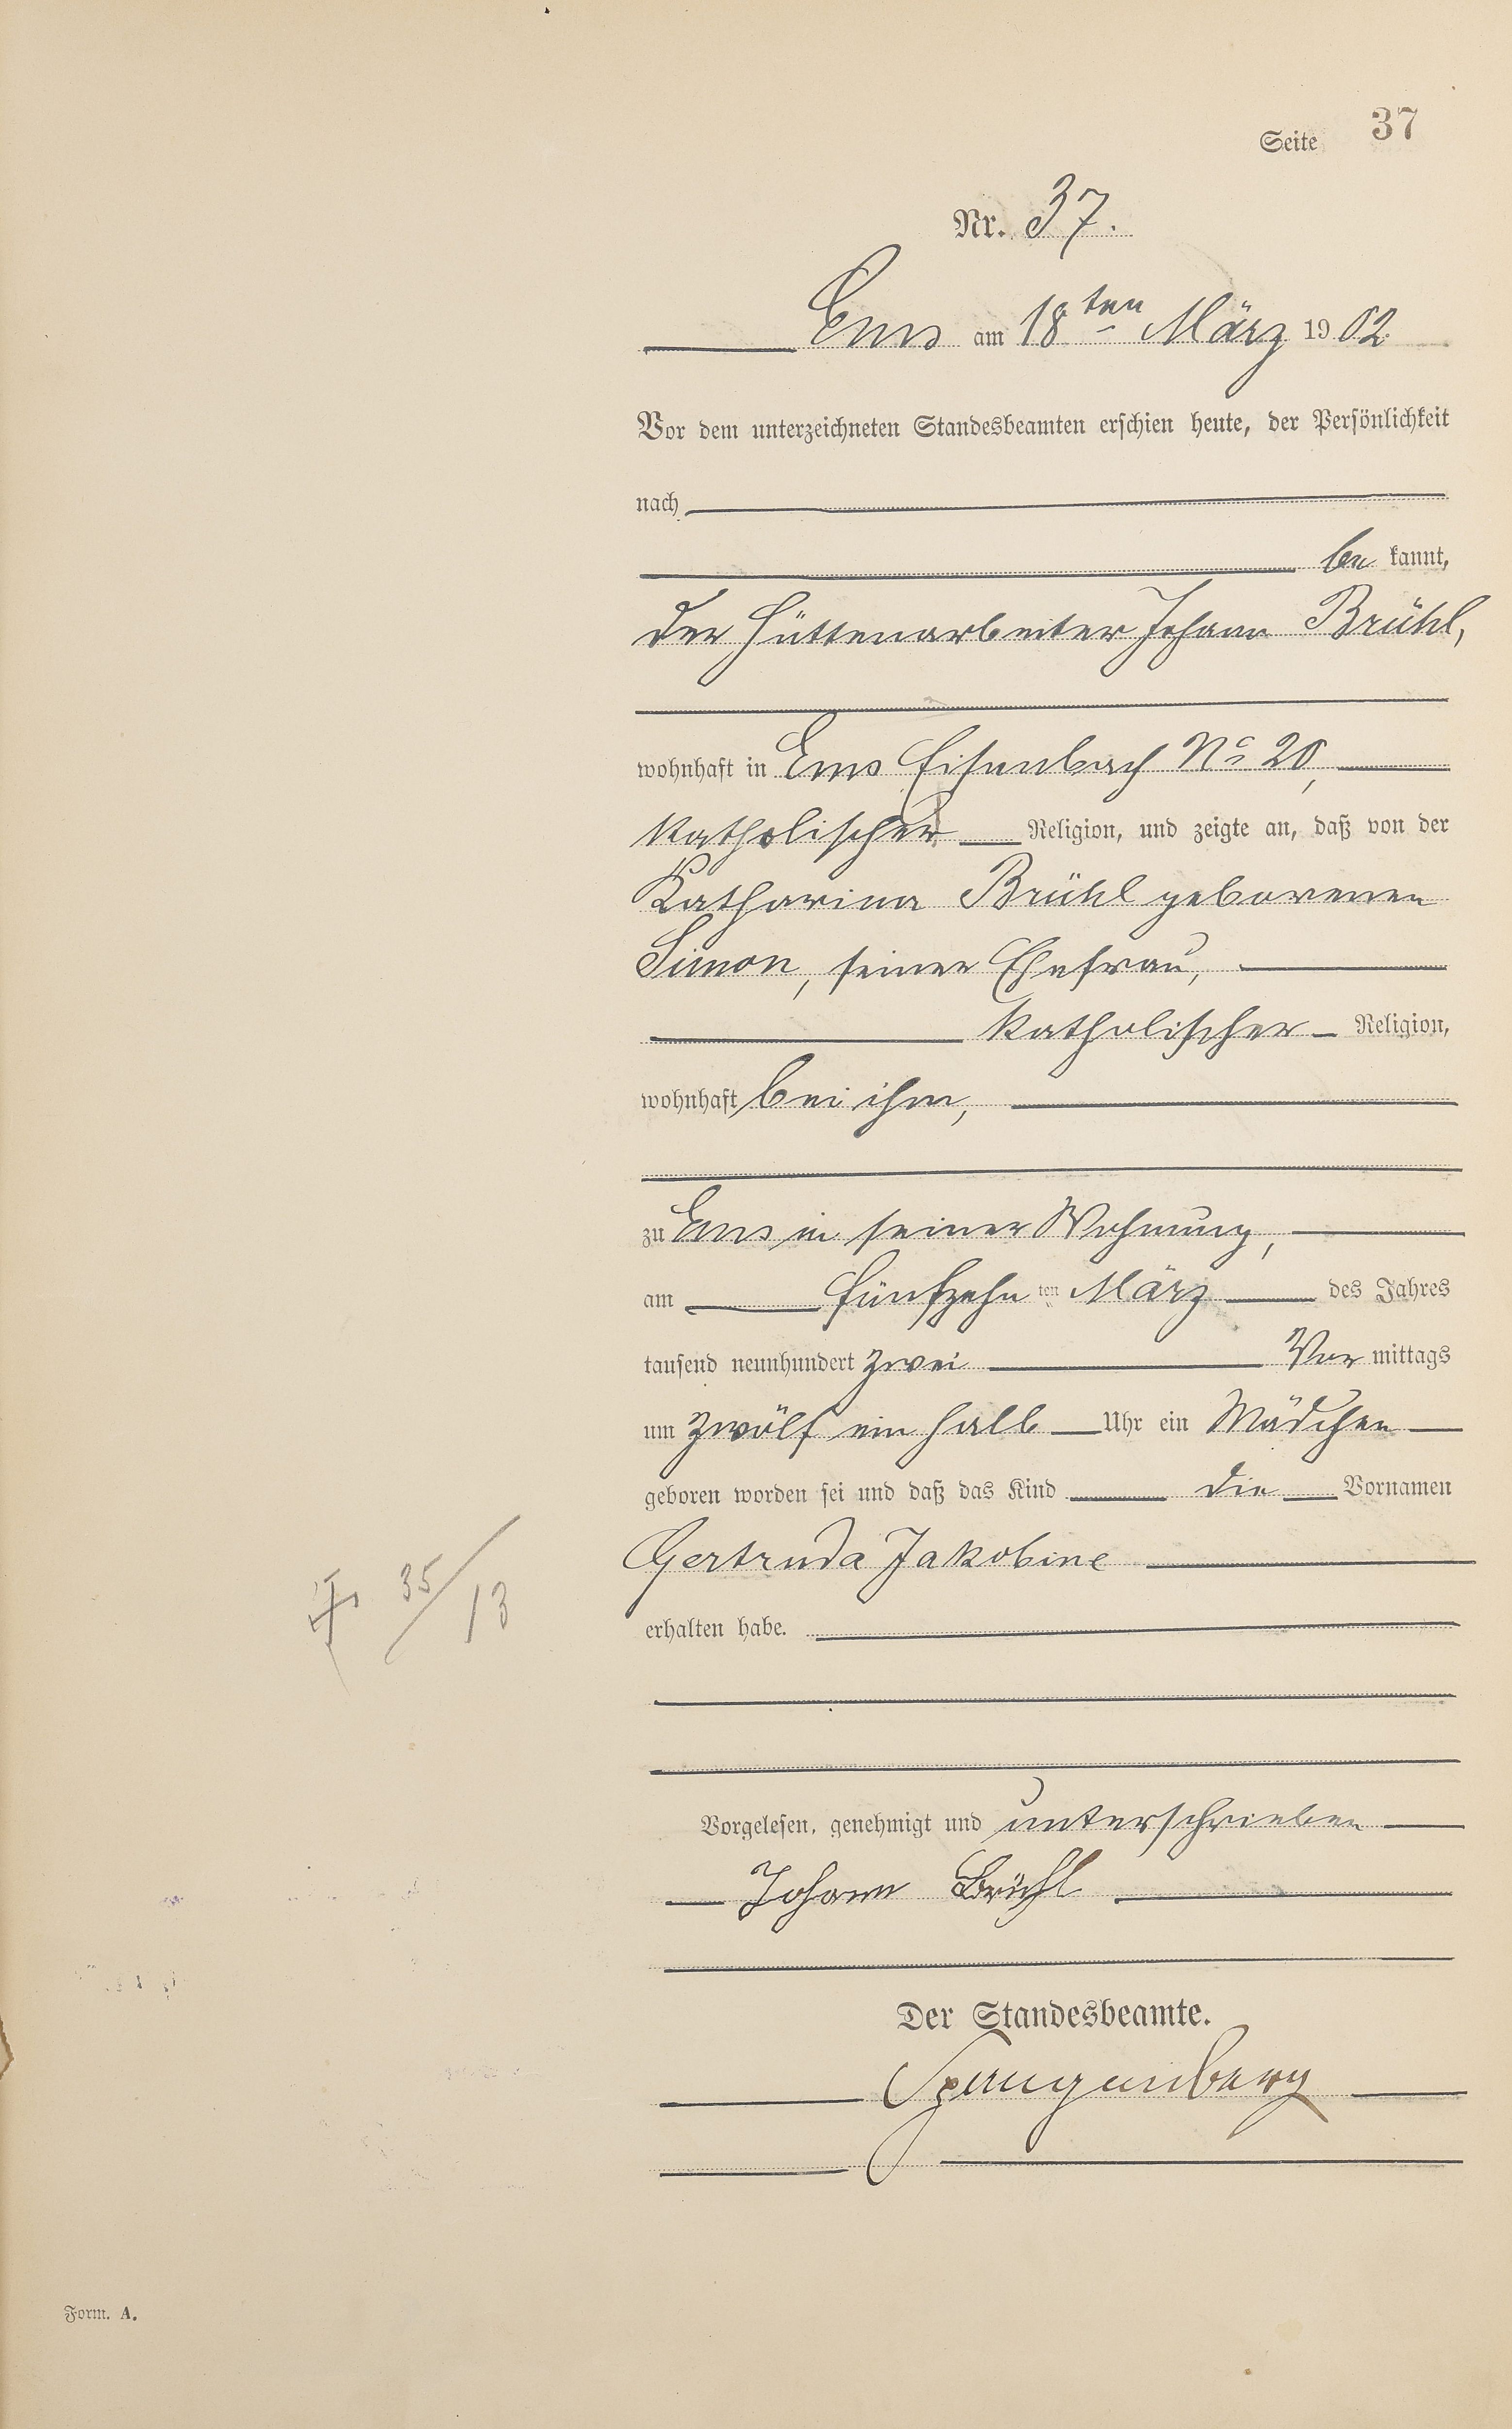 Seite 37
Nr. 37.
Ems am 18ten März 1902
Vor dem unterzeichneten Standesbeamten erschien heute, der Persönlichkeit
nach
be kannt,
der Hüttenarbeiter Johann Brühl,
wohnhaft in Ems Eisenbach No 20,
katholischer Religion, und zeigte an, daß von der
Katharina Brühl geborenen
Simon, seiner Ehefrau,
katholischer Religion,
wohnhaft bei ihm,
zu Ems in seiner Wohnung,
am fünfzehn ten März des Jahres
tausend neunhundert zwei Vor mittags
um zwölf ein halb Uhr ein Mädchen
geboren worden sei und daß das Kind die Vornamen
Gertruda Jakobine
35/13
erhalten habe.
Vorgelesen, genehmigt und unterschrieben
Johann Brühl
Der Standesbeamte.
Spangenberg
Form. A.